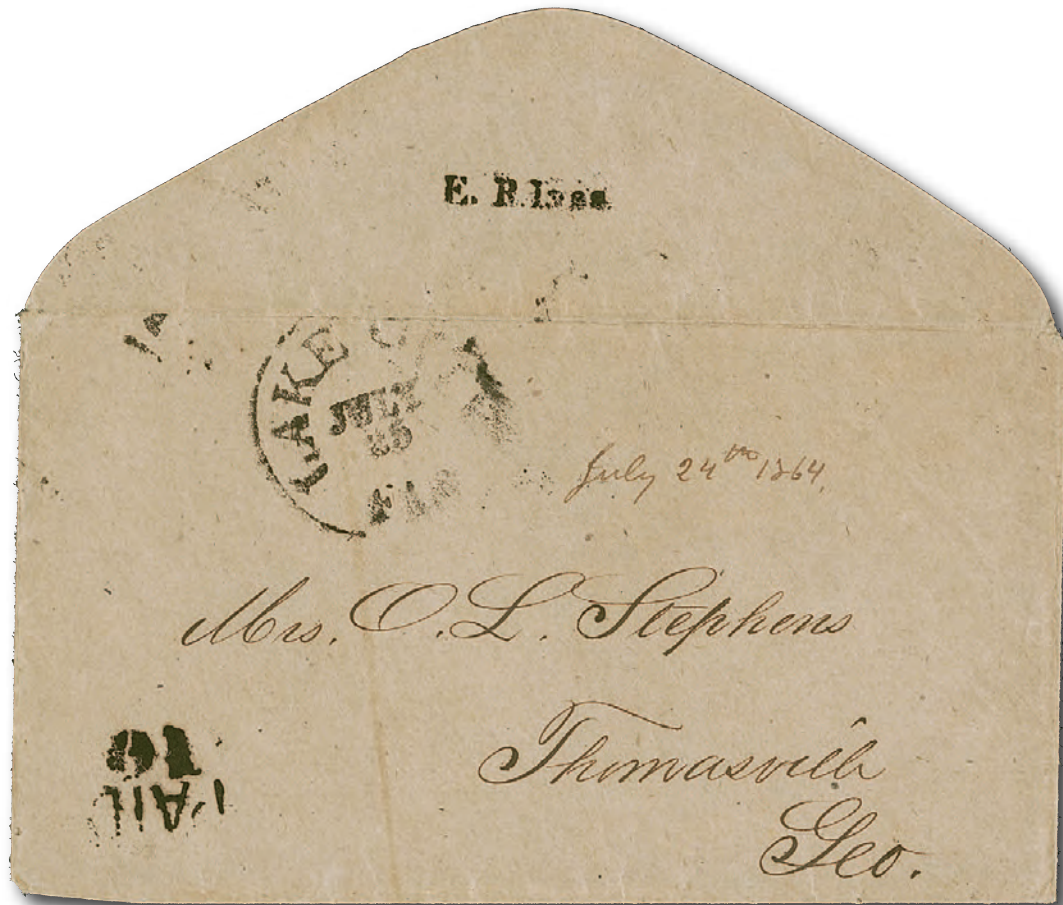 E. R. Ives
LAKE CITY
JULY
25
Fla
July 24th 1864.
Mrs. O. L. Stephens
Thomasvill
Geo.
10
PAID